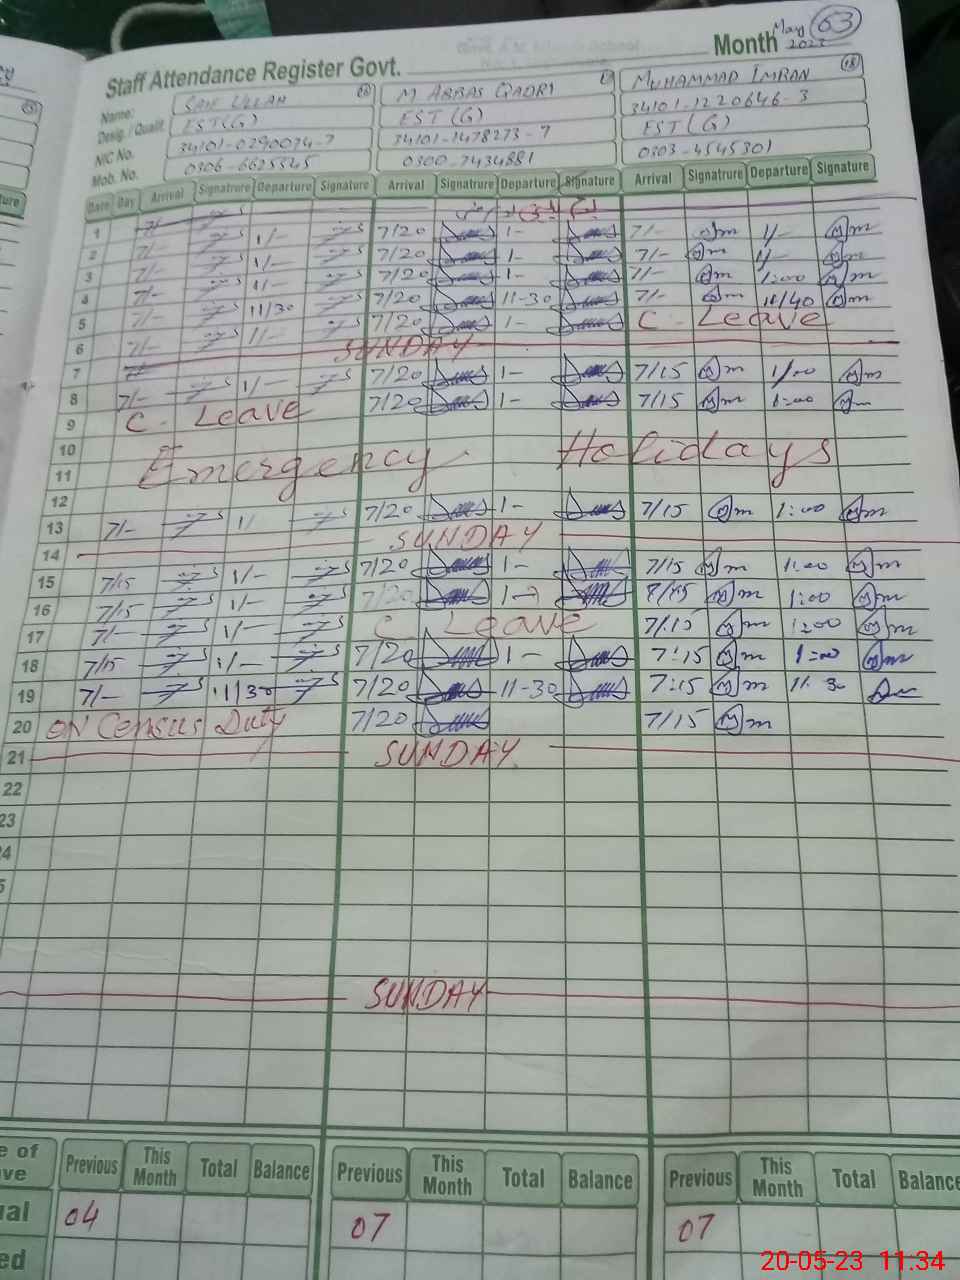 May 63
Staff Attendance Register Govt. Month 2023
Name: SAIF ULLAH M ABBAS QADRI MUHAMMAD IMRAN
Desig. / Qualif. EST(G) EST (G) 34101-1220646-3
NIC No. 34101-0290074-7 34101-1478273-7 EST (G)
Mob. No. 0306-6625545 0300-7434881 0303-4545301
Date Day Arrival Signatrure Departure Signature Arrival Signatrure Departure Signature Arrival Signatrure Departure Signature
1 7/-
2 7/- 1/- 7/20 1- 7/- 1/-
3 7/- 1/- 7/20 1- 7/- 1/-
4 7/- 1/- 7/20 1- 7/- 1:00
5 7/- 11/30 7/20 11-30 7/- 11/40
6 7/- 1/- 7/20 1- C. Leave
7 SUNDAY
8 7/- 1/- 7/20 1- 7/15 1/00
9 C. Leave 7/20 1- 7/15 1:00
10
11 Emergency Holidays
12
13 7/- 1/ 7/20 1- 7/15 1:00
14 SUNDAY
15 7/15 1/- 7/20 1- 7/15 1:00
16 7/15 1/- 7/20 1- 7/15 1:00
17 7/- 1/- C. Leave 7/15 1:00
18 7/15 1/- 7/20 1- 7:15 1:00
19 7/- 11/30 7/20 11-30 7:15 11:30
20 ON Census Duty 7/20 7/15
21 SUNDAY
22
23
24
SUNDAY
Previous This Month Total Balance Previous This Month Total Balance Previous This Month Total Balance
04 07 07
20-05-23 11:34